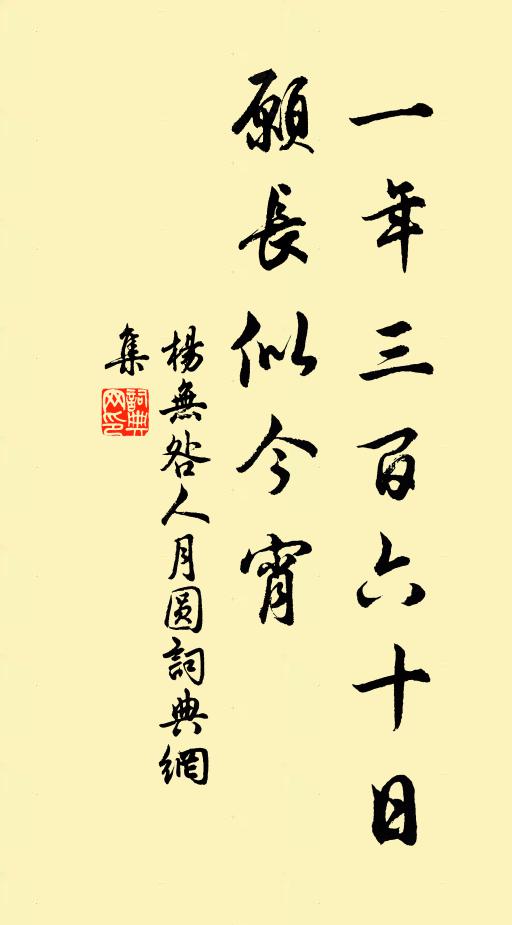 一年三百六十日
願長似今宵
楊無咎人月圆詞典網
集
詞典網印